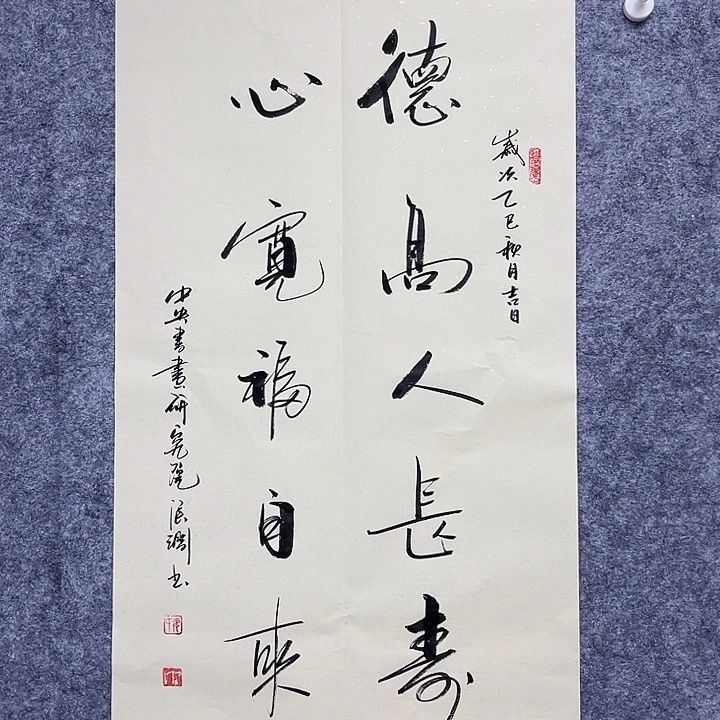 歲次乙巳秋月吉日
德高人長壽
心寬福自來
中央書畫研究院張潤書